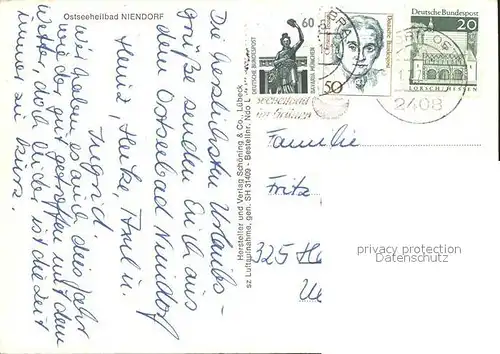 Ostseeheilbad NIENDORF
Die herzlichsten Urlaubs-
grüße senden Euch aus
dem Ostseebad Niendorf
Heinz, Heike, Axel u.
Ingrid.
Wir haben es auch dies Jahr
wieder gut getroffen mit dem
Wetter, doch leider ist die Zeit
immer zu kurz.
Hersteller und Verlag Schöning & Co., Lübeck
sz Luftaufnahme, gen. SH 31409 - Bestellnr. Ndo L
60
DEUTSCHE BUNDESPOST
BAVARIA MÜNCHEN
50
Deutsche Bundespost
Deutsche Bundespost
20
LORSCH/HESSEN
2408
Familie
Fritz
325
privacy protection
www.oldthing.com